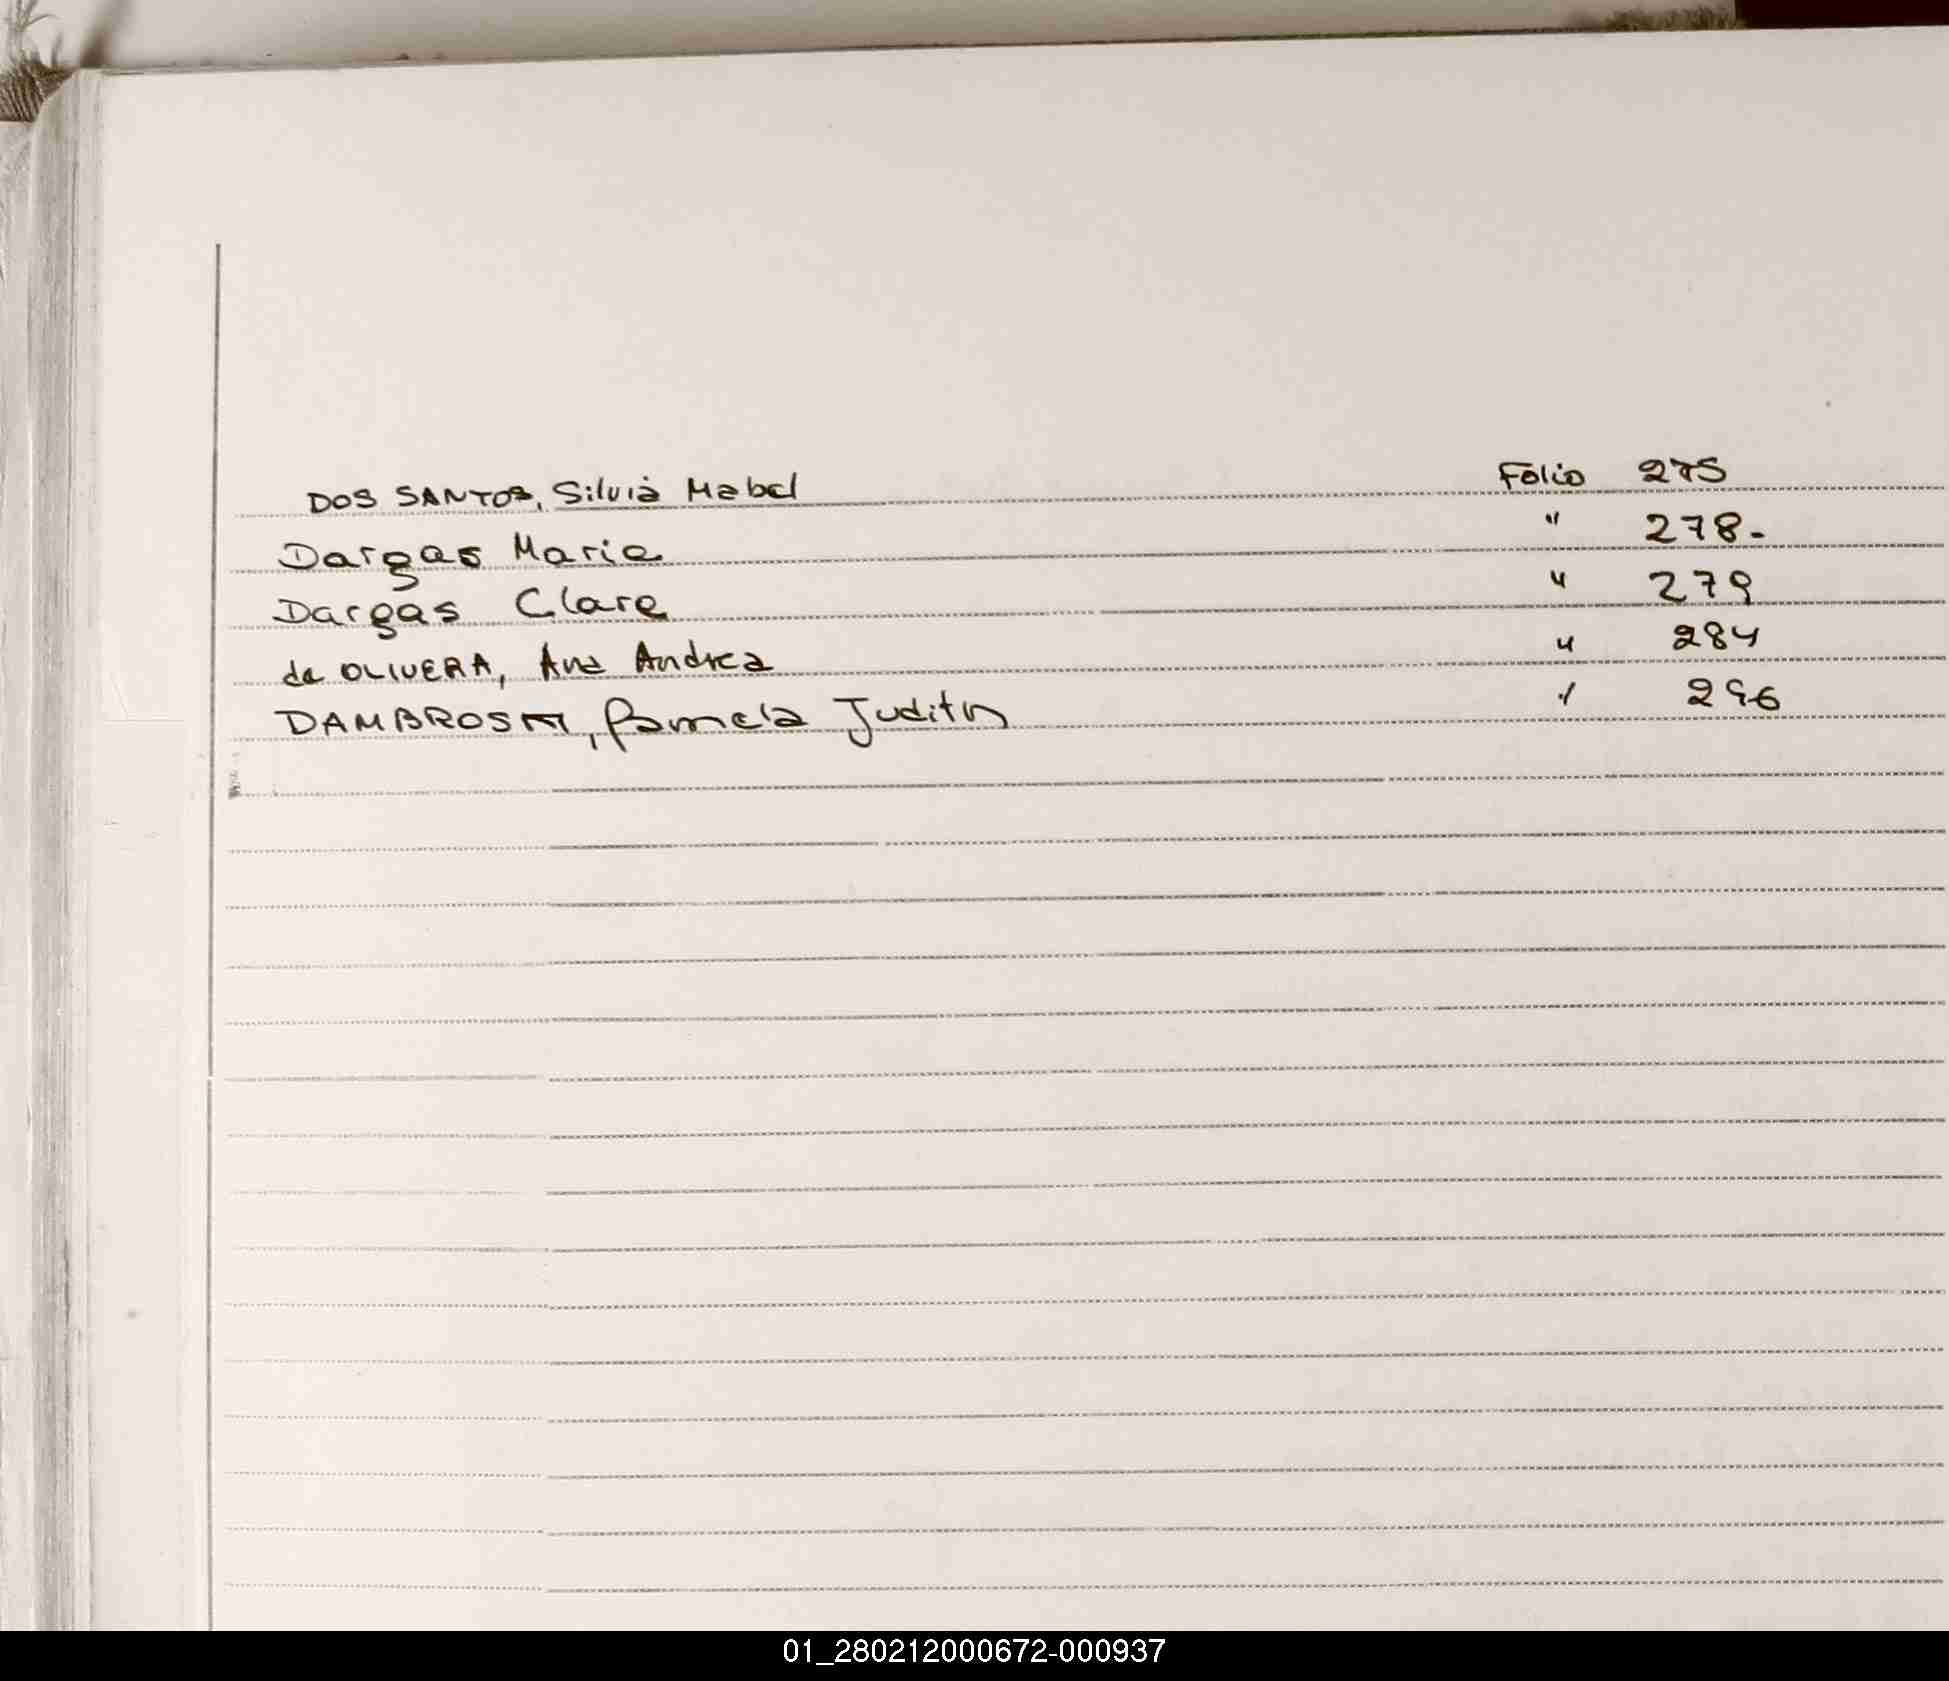 DOS SANTOS, Silvia Mabel Folio 275
Dargas Maria " 278-
Dargas Clara " 279
de OLIVERA, Ana Andrea " 284
Pamela Judith " 296
01_280212000672-000937